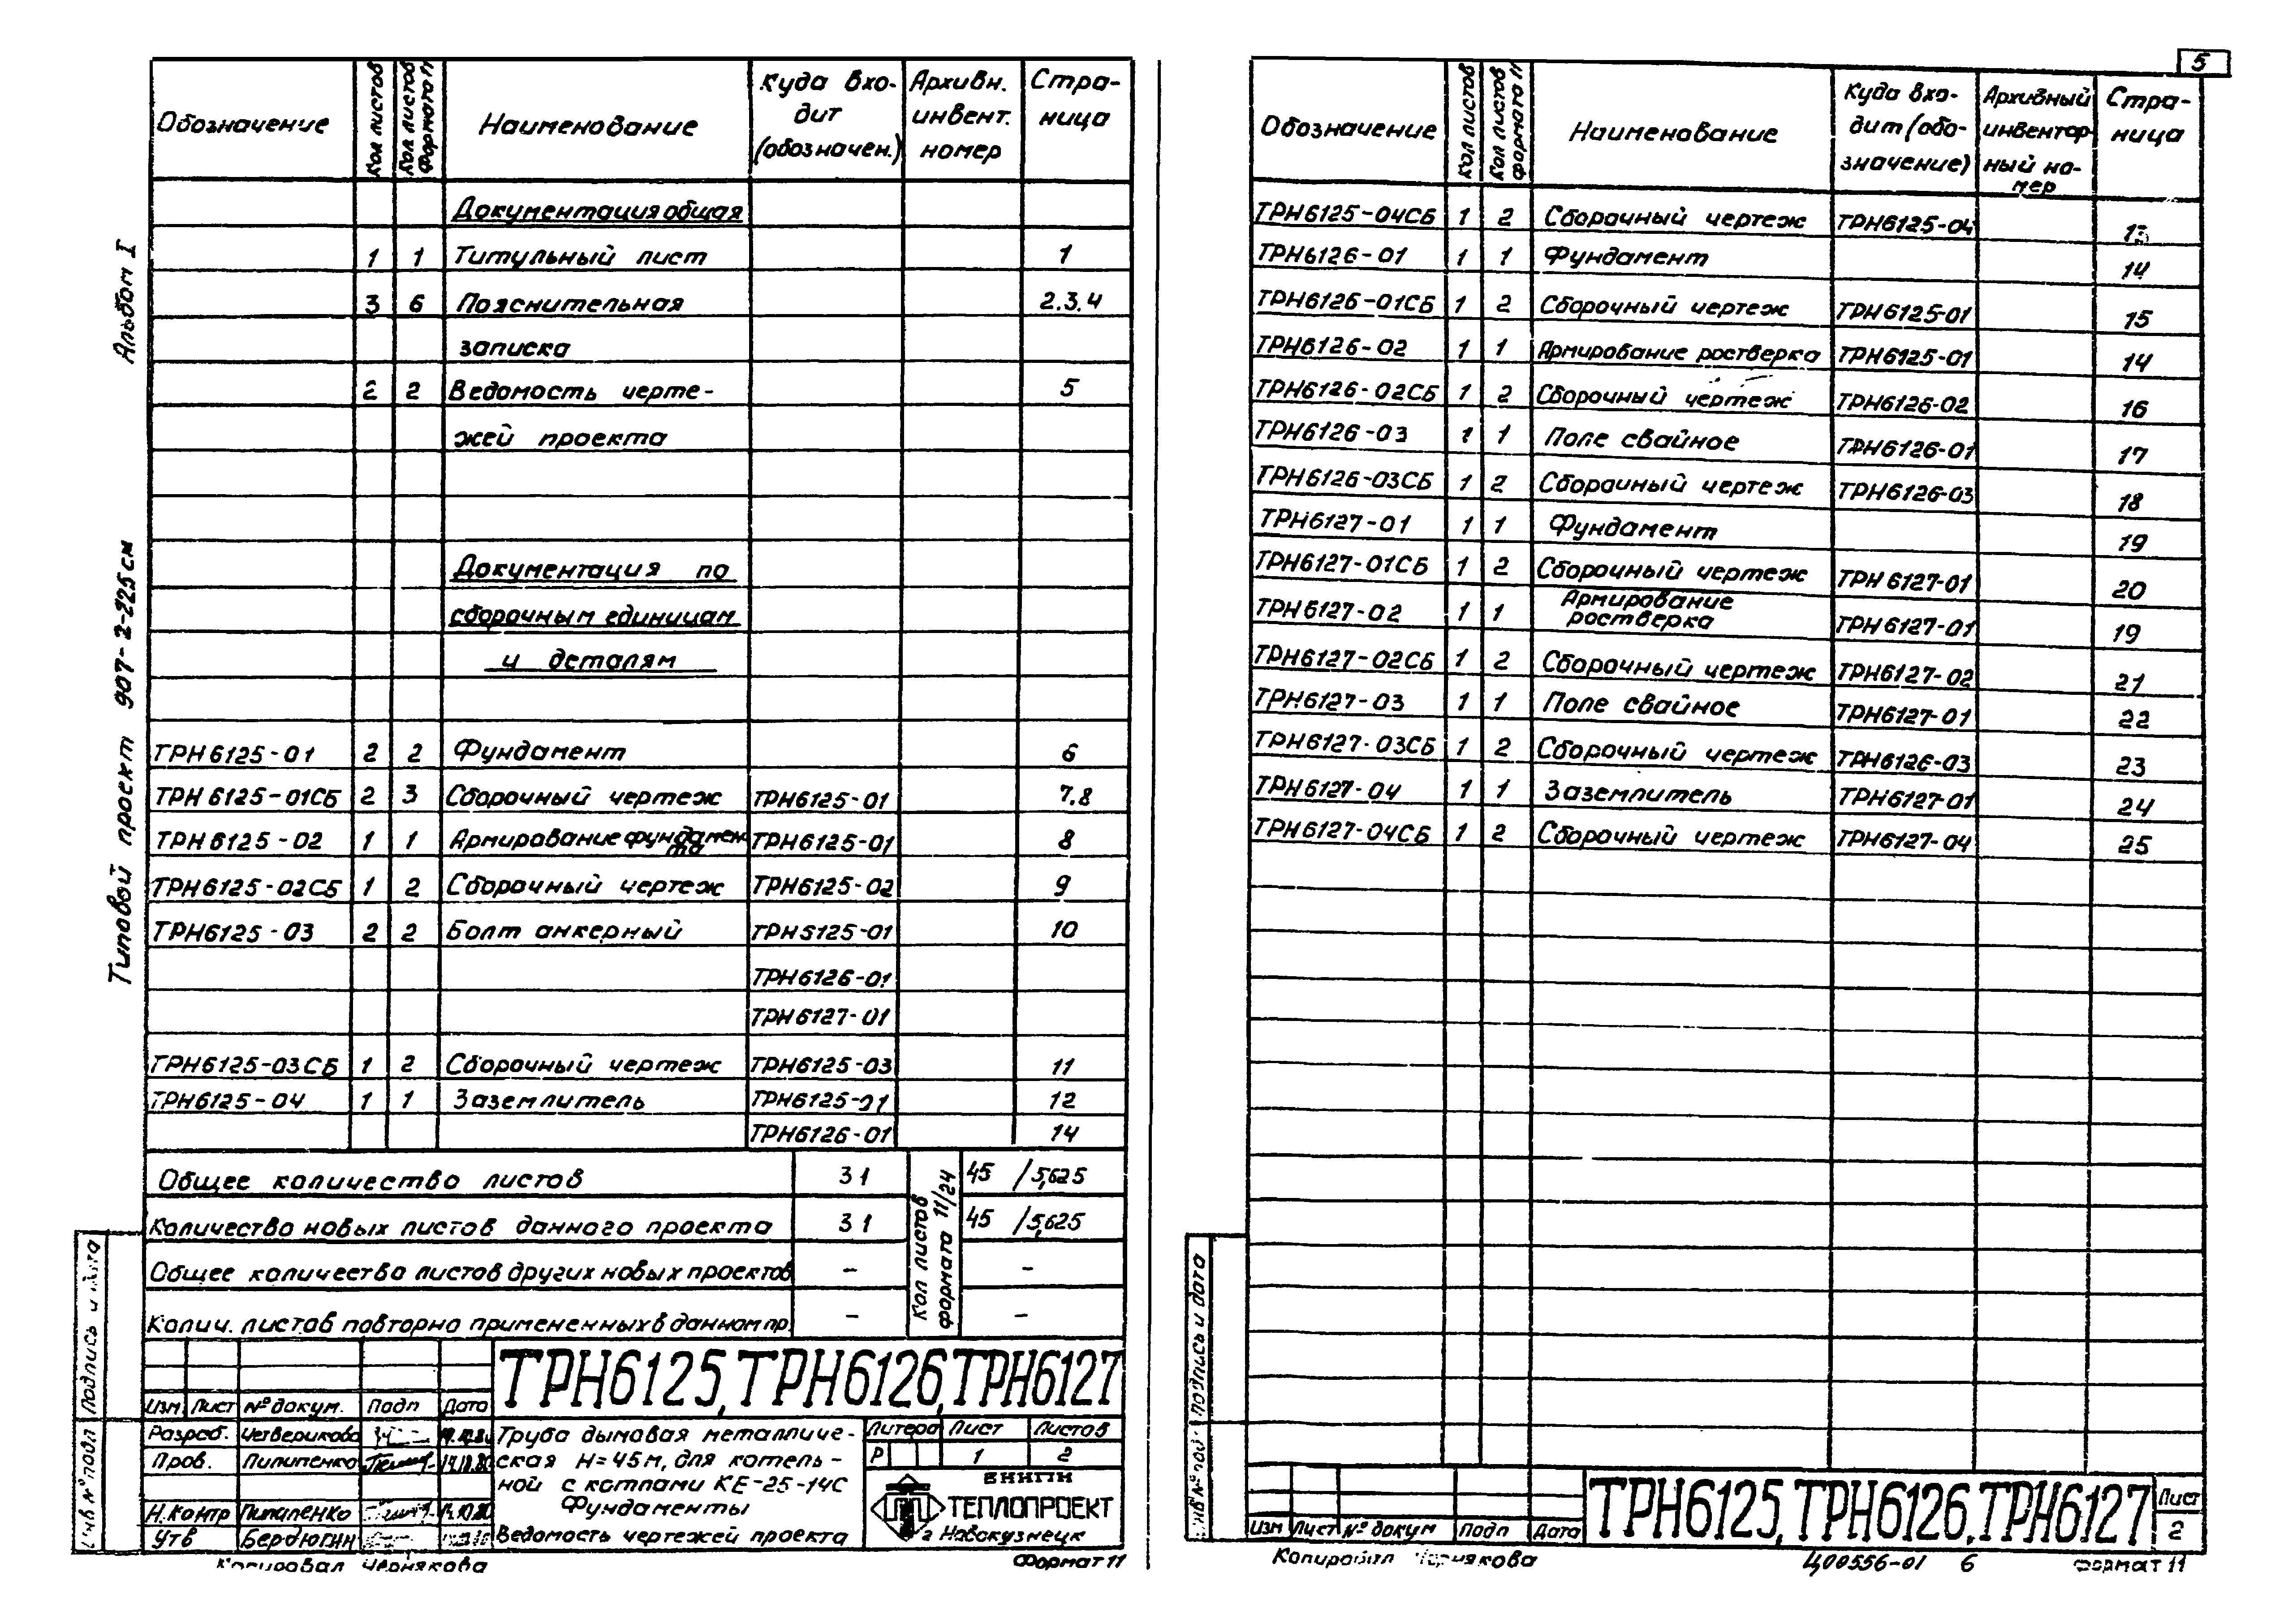 Альбом I
Типовой проект 907-2-225см
Обозначение | Кол листов | Кол листов формата 11 | Наименование | Куда входит (обозначен.) | Архивн. инвент. номер | Страница
Документация общая
1 1 Титульный лист 1
3 6 Пояснительная 2.3.4
записка
2 2 Ведомость черте- 5
жей проекта
Документация по
сборочным единицам
и деталям
ТРН6125-01 2 2 Фундамент 6
ТРН6125-01СБ 2 3 Сборочный чертеж ТРН6125-01 7.8
ТРН6125-02 1 1 Армирование фундамента ТРН6125-01 8
ТРН6125-02СБ 1 2 Сборочный чертеж ТРН6125-02 9
ТРН6125-03 2 2 Болт анкерный ТРН5125-01 10
ТРН6126-01
ТРН6127-01
ТРН6125-03СБ 1 2 Сборочный чертеж ТРН6125-03 11
ТРН6125-04 1 1 Заземлитель ТРН6125-01 12
ТРН6126-01 14
Общее количество листов 31 45 /5,625
Количество новых листов данного проекта 31 45 /5,625
Общее количество листов других новых проектов - -
Колич. листов повторно примененных в данном пр. - -
Кол листов формата 11/24
Подпись и дата
Инв № подл
ТРН6125, ТРН6126, ТРН6127
Изм Лист № докум. Подп Дата
Разраб. Четверикова
Пров. Пилипенко
Н.контр Пилипенко
Утв Бердюгин
Труба дымовая металличе-
ская Н=45м, для котель-
ной с котлами КЕ-25-14С
Фундаменты
Ведомость чертежей проекта
Литера Лист Листов
Р 1 2
ВНИПИ
ТЕПЛОПРОЕКТ
г Новокузнецк
Копировал Чернякова
Формат 11
5
Обозначение | Кол листов | Кол листов формата 11 | Наименование | Куда входит (обозначение) | Архивный инвентарный номер | Страница
ТРН6125-04СБ 1 2 Сборочный чертеж ТРН6125-04 13
ТРН6126-01 1 1 Фундамент 14
ТРН6126-01СБ 1 2 Сборочный чертеж ТРН6125-01 15
ТРН6126-02 1 1 Армирование ростверка ТРН6125-01 14
ТРН6126-02СБ 1 2 Сборочный чертеж ТРН6126-02 16
ТРН6126-03 1 1 Поле свайное ТРН6126-01 17
ТРН6126-03СБ 1 2 Сборочный чертеж ТРН6126-03 18
ТРН6127-01 1 1 Фундамент 19
ТРН6127-01СБ 1 2 Сборочный чертеж ТРН6127-01 20
ТРН6127-02 1 1 Армирование ростверка ТРН6127-01 19
ТРН6127-02СБ 1 2 Сборочный чертеж ТРН6127-02 21
ТРН6127-03 1 1 Поле свайное ТРН6127-01 22
ТРН6127-03СБ 1 2 Сборочный чертеж ТРН6126-03 23
ТРН6127-04 1 1 Заземлитель ТРН6127-01 24
ТРН6127-04СБ 1 2 Сборочный чертеж ТРН6127-04 25
Подпись и дата
Инв № под.
Изм Лист № докум Подп Дата
ТРН6125, ТРН6126, ТРН6127
Лист
2
Копировал Чернякова
Ц00556-01 6
Формат 11